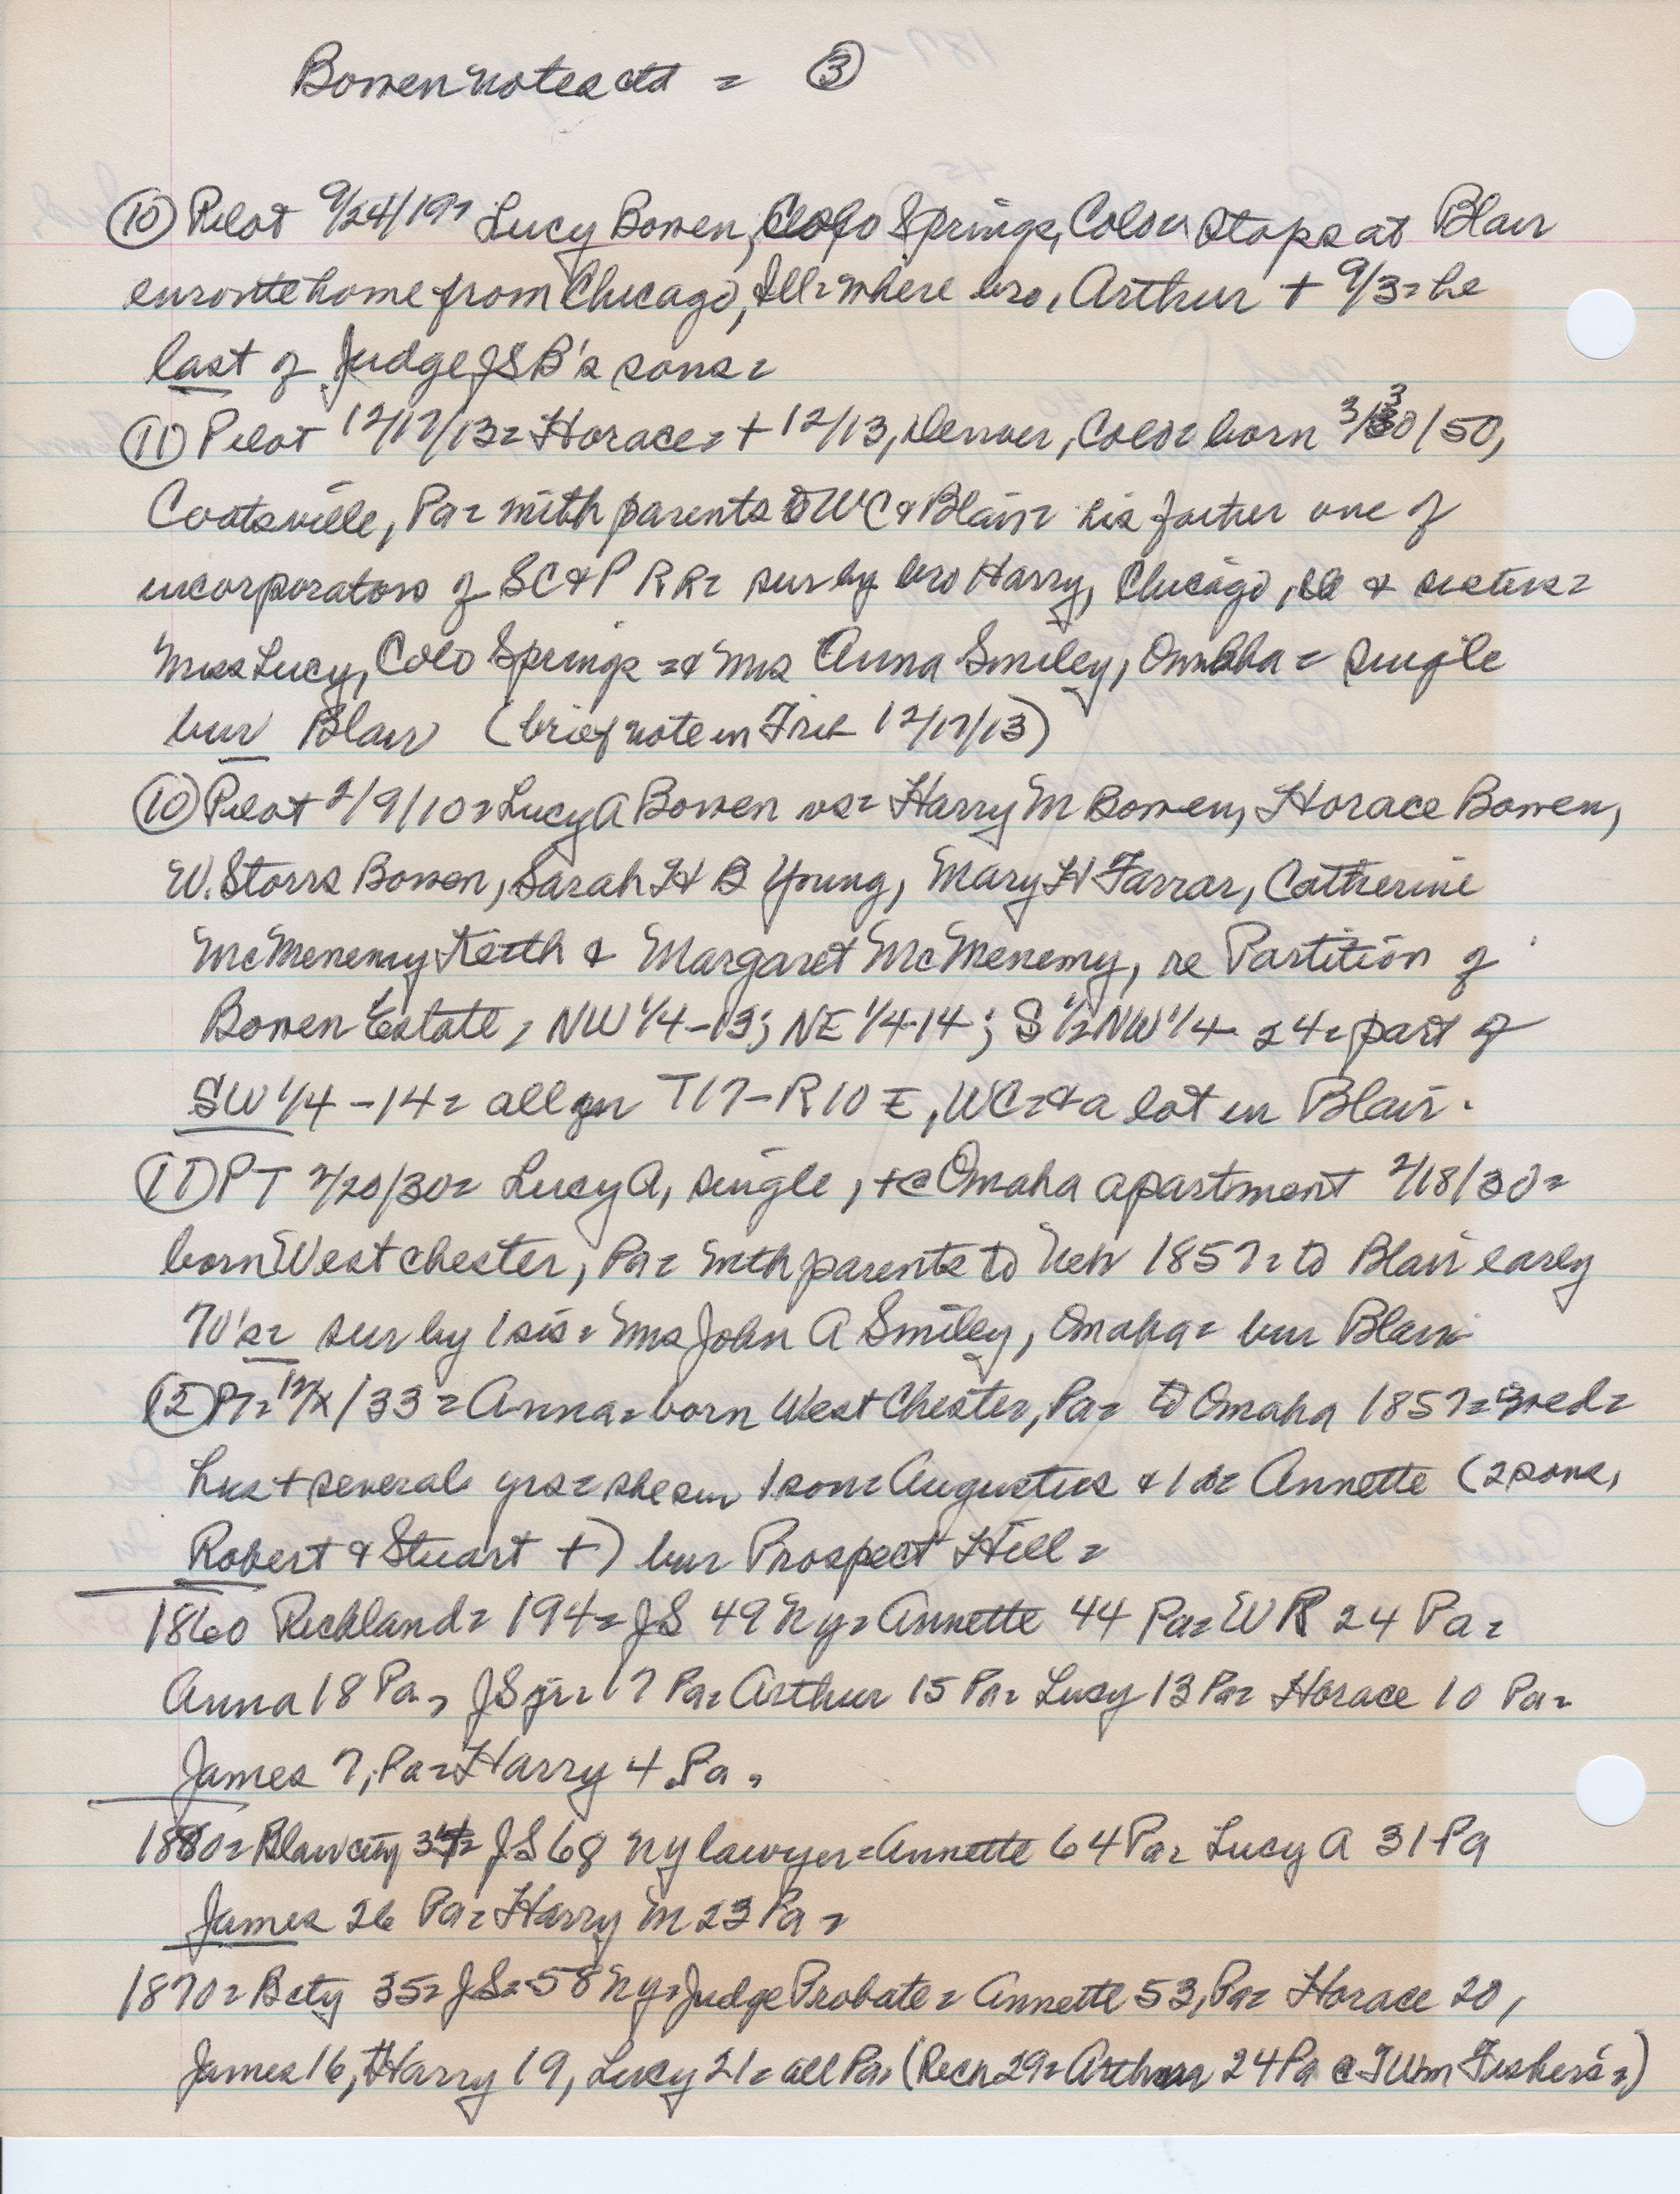 Bowen notes ctd = ③
⑩ Pilot 9/24/19= Lucy Bowen, Colo Springs, Colo= Stops at Blair
enroute home from Chicago, Ill= where bro, Arthur + 9/3= he
last of Judge JSB's sons=
⑪ Pilot 12/17/13= Horace= + 12/13, Denver, Colo= born 3/30/50,
Coatsville, Pa= with parents to WC & Blair= his father one of
incorporators of SC&P RR= sur by bro Harry, Chicago, Ill & sisters=
Miss Lucy, Colo Springs =& Mrs Anna Smiley, Omaha = single
bur Blair (brief note in Trib 12/17/13)
⑩ Pilot 2/9/10= Lucy A Bowen vs= Harry M Bowen, Horace Bowen,
W. Storrs Bowen, Sarah H B Young, Mary H Farrar, Catherine
McMenemy Keith & Margaret McMenemy, re Partition of
Bowen Estate, NW 1/4-13; NE 1/4-14; S 1/2 NW 1/4 24= part of
SW 1/4-14= all in T17-R10E, WC=& a lot in Blair.
⑪ PT 2/20/30= Lucy A, single, + @ Omaha apartment 2/18/30=
born West chester, Pa= with parents to Neb 1857= to Blair early
70's= sur by 1 sis= Mrs John A Smiley, Omaha= bur Blair
⑫ PT= 12/x/33= Anna= born West Chester, Pa= to Omaha 1857= wed=
hus + several yrs= she sur 1 son= Augustus & 1 d= Annette (2 sons,
Robert & Stuart +) bur Prospect Hill=
1860 Richland= 194= JS 49 Ny= Annette 44 Pa= WR 24 Pa=
Anna 18 Pa, JS jr= 17 Pa= Arthur 15 Pa= Lucy 13 Pa= Horace 10 Pa=
James 7, Pa= Harry 4 Pa,
1880= Blair city 34= JS 68 Ny lawyer= Annette 64 Pa= Lucy A 31 Pa
James 26 Pa= Harry M 23 Pa=
1870= Bcty 35= JS= 58 Ny= Judge Probate= Annette 53, Pa= Horace 20,
James 16, Harry 19, Lucy 21= all Pa, (Rich 29= Arthur 24 Pa @ T Wm Fisher's=)